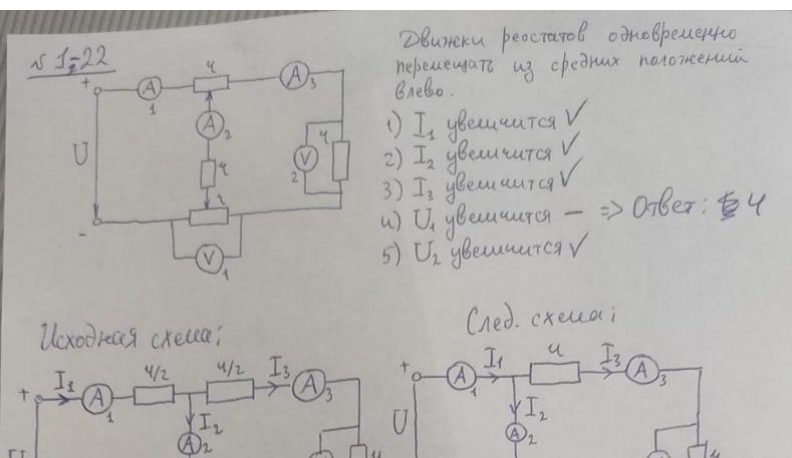 № 1-22
Движки реостатов одновременно
перемещать из средних положений
влево.
1) I₁ увеличится ✓
2) I₂ увеличится ✓
3) I₃ увеличится ✓
4) U₁ увеличится — => Ответ: 4
5) U₂ увеличится ✓
+ A 1 4 A 3
A 2
U 4 V 2 4
4
-
V 1
Исходная схема:
След. схема:
+ I₁ A 1 4/2 4/2 I₃ A 3
I₂
A 2
U 4
+ I₁ A 1 4 I₃ A 3
U I₂
A 2
4